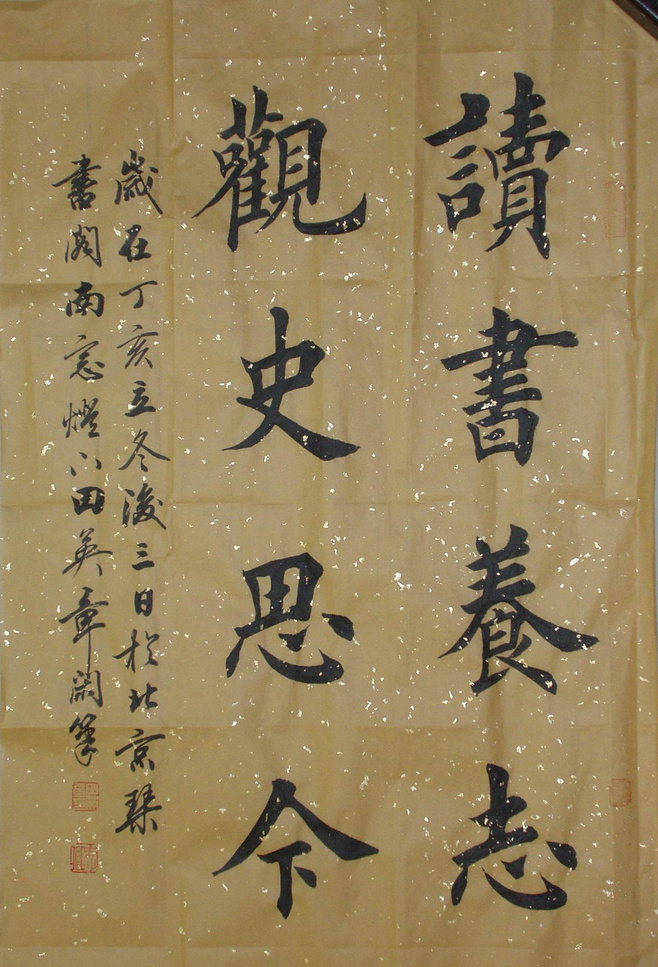 讀書養志
觀史思今
歲在丁亥立冬後三日於北京琴
書閣南窓燈下田英章閑筆